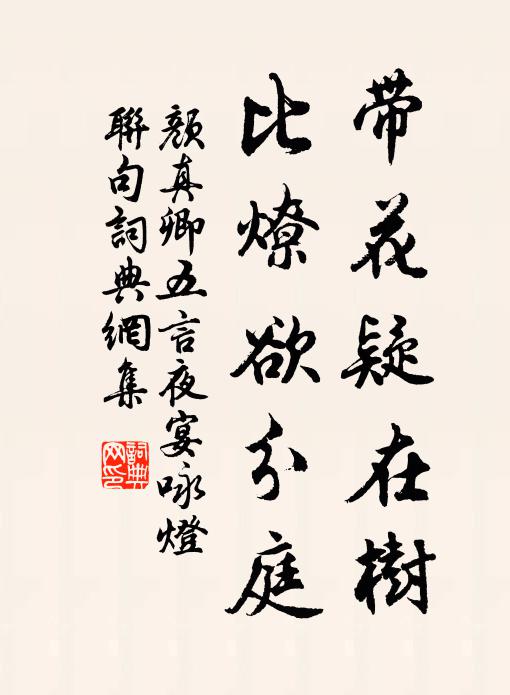 带花疑在樹
比燎欲分庭
顏真卿五言夜宴咏燈
聯句詞典網集
詞典网印